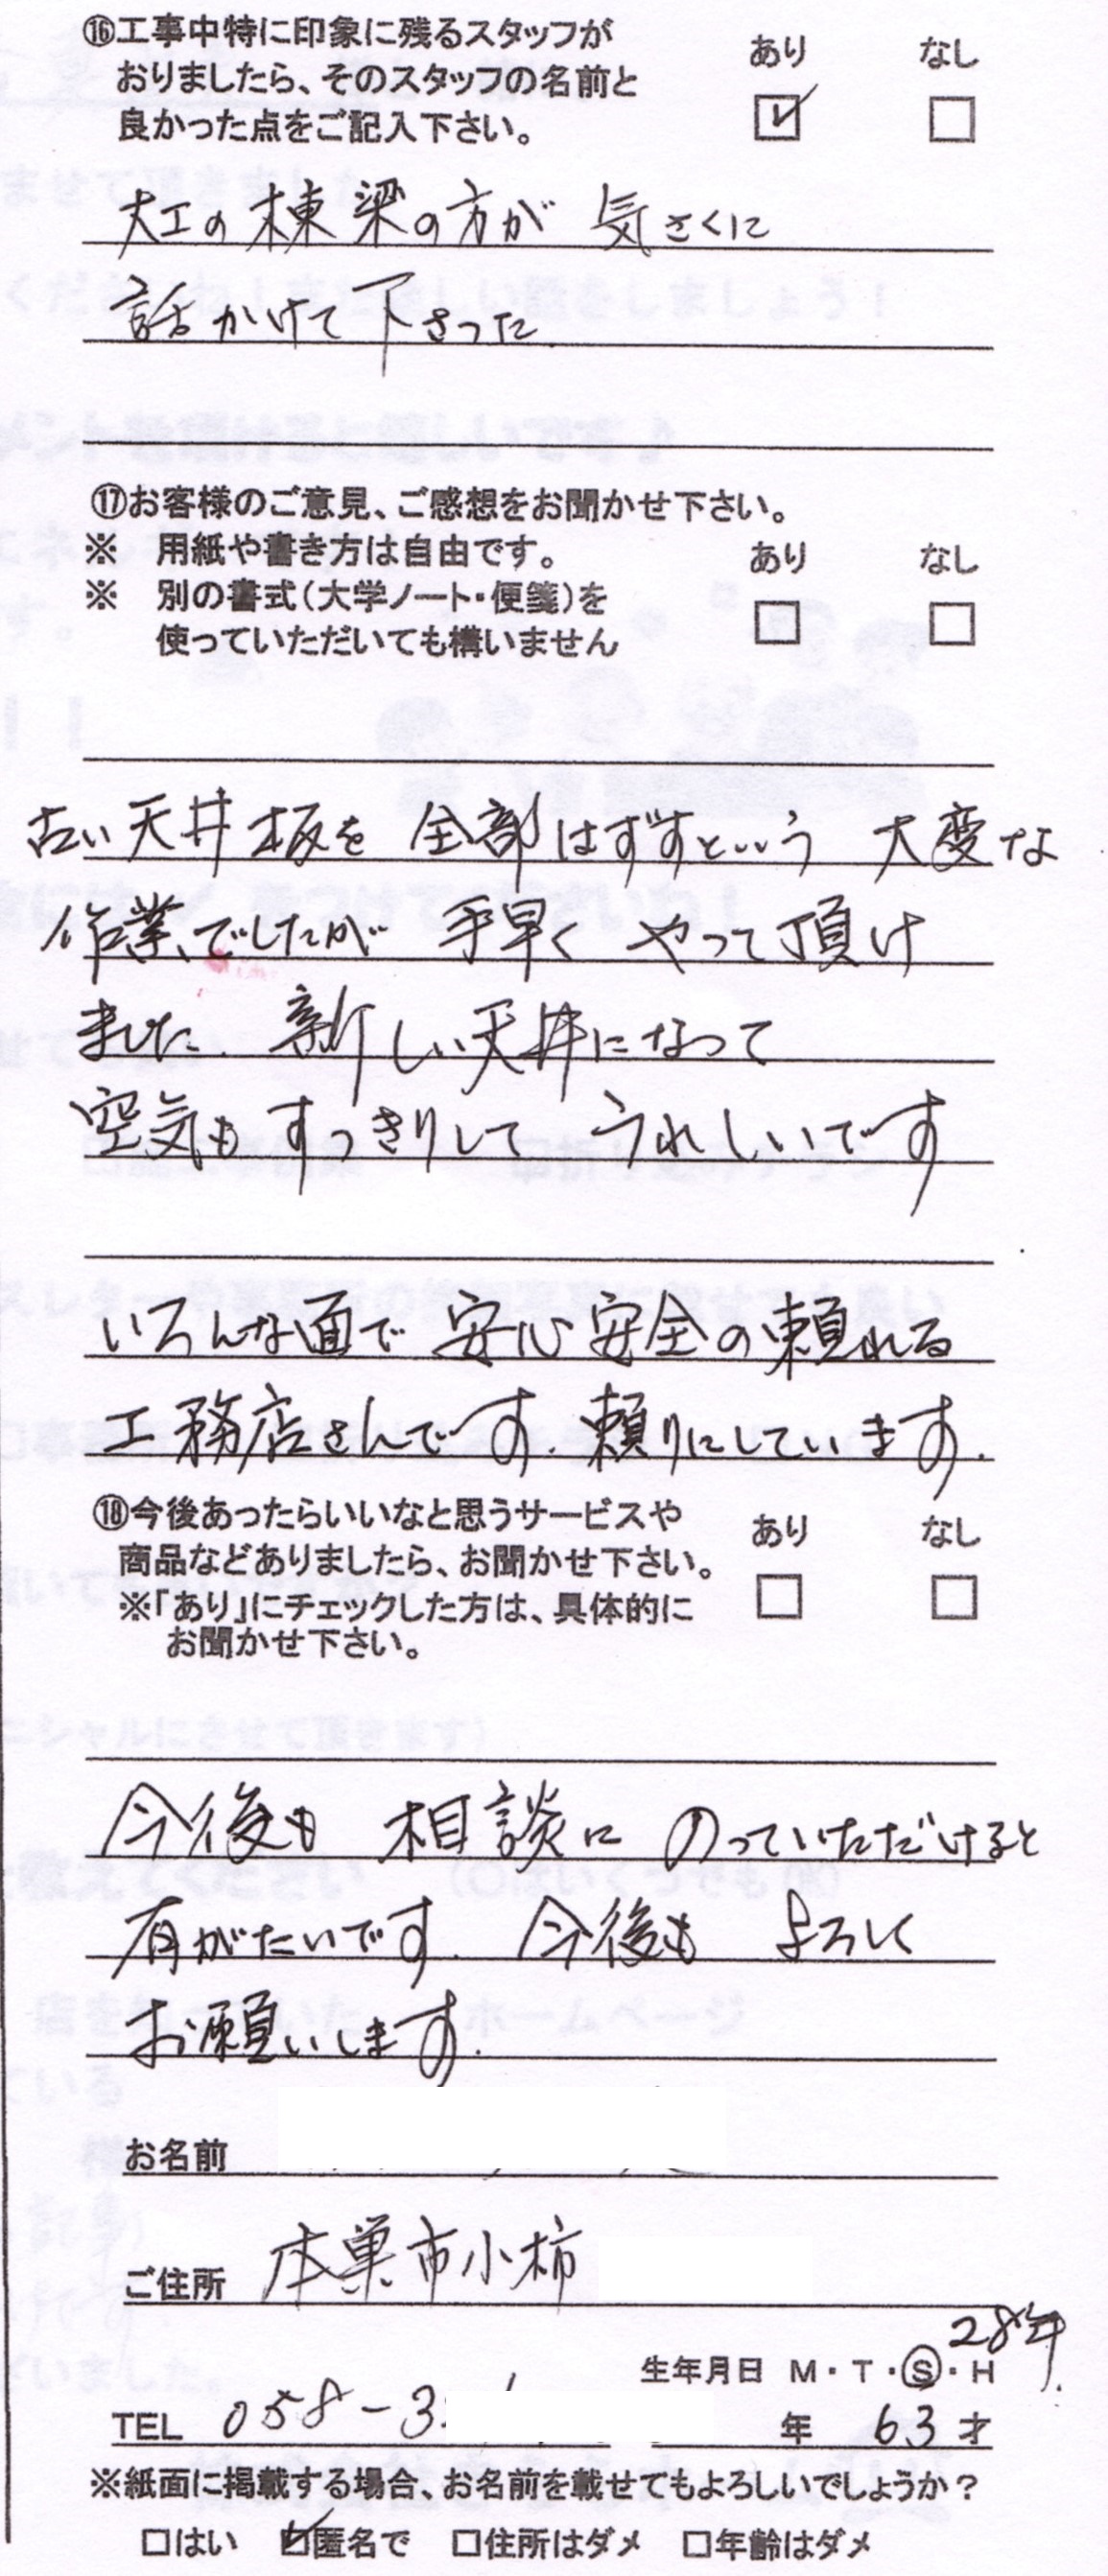 ⑯工事中特に印象に残るスタッフが
おりましたら、そのスタッフの名前と
良かった点をご記入下さい。
あり なし
大工の棟梁の方が 気さくに
話かけて下さった
⑰お客様のご意見、ご感想をお聞かせ下さい。
※ 用紙や書き方は自由です。
※ 別の書式(大学ノート・便箋)を
使っていただいても構いません
あり なし
古い天井板を 全部はずすという 大変な
作業でしたが 手早く やって頂け
ました. 新しい天井になって
空気も すっきりして うれしいです
いろんな面で 安心安全の頼れる
工務店さんです. 頼りにしています.
⑱今後あったらいいなと思うサービスや
商品などありましたら、お聞かせ下さい。
※「あり」にチェックした方は、具体的に
お聞かせ下さい。
あり なし
今後も 相談に のっていただけると
有がたいです. 今後も よろしく
お願いします.
お名前
ご住所 本巣市小柿
28年
生年月日 M・T・S・H
TEL 058-3
年 63才
※紙面に掲載する場合、お名前を載せてもよろしいでしょうか?
□はい ☑匿名で □住所はダメ □年齢はダメ